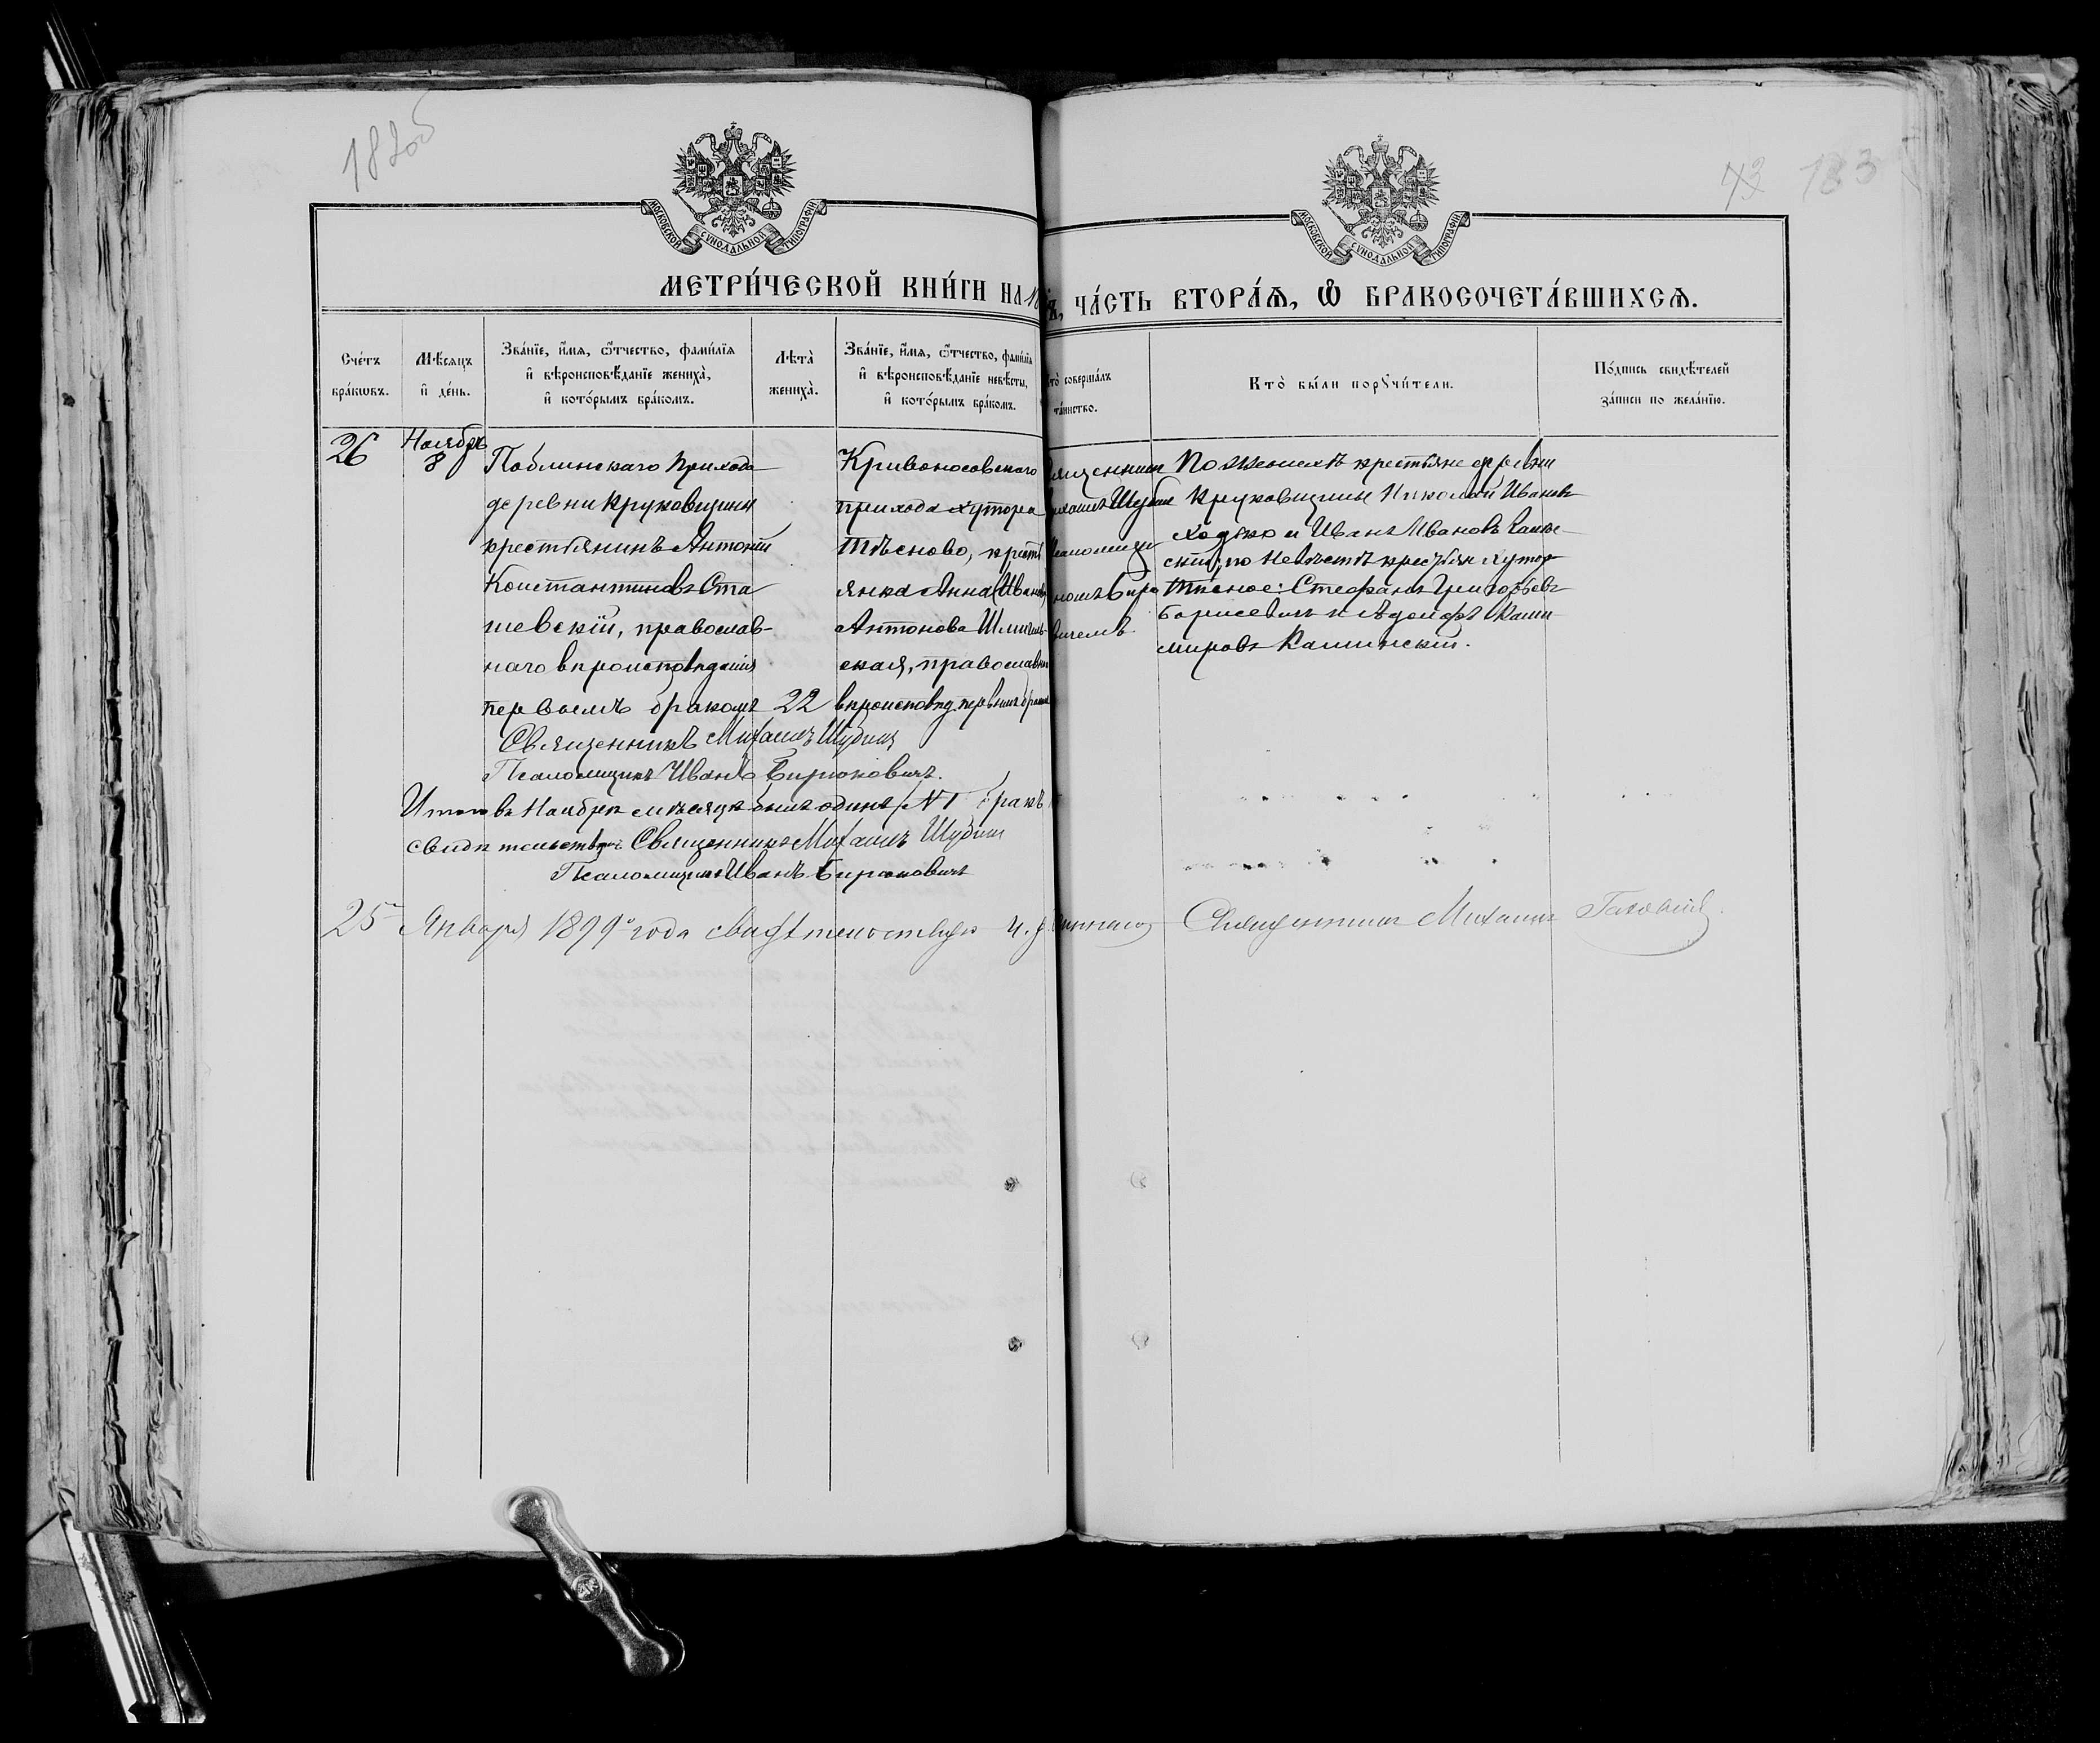 182об
43 183
МОСКОВСКОЙ СѴНОДАЛЬНОЙ ТИПОГРАФІИ
МОСКОВСКОЙ СѴНОДАЛЬНОЙ ТИПОГРАФІИ
МЕТРИ́ЧЕСКОЙ КНИ́ГИ НА 18
, ЧА́СТЬ ВТОРА́Ѧ, Ѽ БРАКОСОЧЕТА́ВШИХСѦ.
Сче́тъ бра́кѡвъ.
Мѣ́сяцъ и҆ де́нь.
Зва́нїе, и҆́мѧ, ѻ҆́тчество, фами́лїѧ и҆ вѣроисповѣ́данїе жениха̀, и҆ кото́рымъ бра́комъ.
Лѣта̀ жениха̀.
Зва́нїе, и҆́мѧ, ѻ҆́тчество, фами́лїѧ и҆ вѣроисповѣ́данїе невѣ́сты, и҆ кото́рымъ бра́комъ.
то̀ соверша́лъ та́инство.
Кто̀ бы́ли порꙋчи́тели.
По́дпись свидѣ́телей за́писи по жела́нїю.
26
Ноября
8
Поблинскаго прихода
деревни Круковщины
крестьянинъ Антоній
Константиновъ Ста
шевскій, православ-
наго вѣроисповѣданія
первымъ бракомъ
22
Кривоносовскаго
прихода хутора
Тѣсново, кресть
янка Анна
Антонова
ская, православн
вѣроисповѣд. первымъ браком
Священникъ Михаилъ Шубин
Псаломщикъ Иванъ Бирюковичъ.
По женихѣ крестьяне деревни
Круковщины Николай Ивановъ
Ходько и Иванъ Ивановъ
скій, по невѣстѣ крестьяне хутор
Тѣсное: Стефанъ Григорьевъ
Борисевичъ и Адольфъ Кази-
міровъ Калинскій.
Итого въ Ноябрѣ мѣсяцѣ былъ одинъ /№1 бракъ
свидѣтельствую: Священникъ Михаилъ Шубин
Псаломщикъ Иванъ Бирюковичъ
25 Января 1899 года свидѣтельствую Священникъ Михаилъ